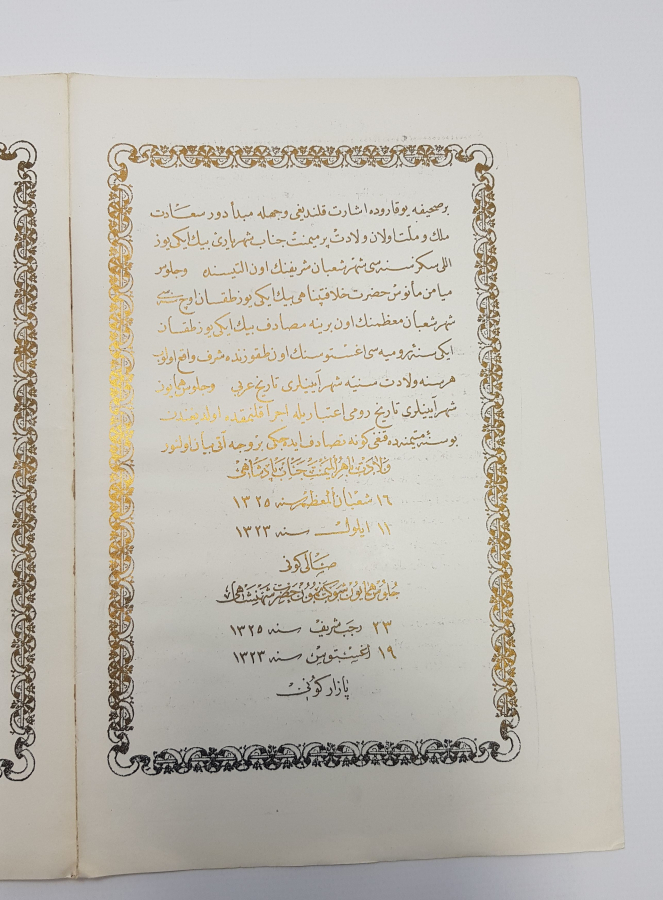 بر صحیفه یوقاروده اشارت قلندیغی وجهله مبدأ دور سعادت
ملك و ملت اولان ولادت پر میمنت جناب شهریاری بیك ایکی یوز
اللی سکز سنه سی شهر شعبان شریفنك اون التیسنده و جلوس
میامن مأنوس حضرت خلافتپناهی بیك ایکی یوز طقسان اوچ سنه سی
شهر شعبان معظمنك اون برینه مصادف بیك ایکی یوز طقسان
ایکی سنهٔ رومیه سی اغستوسنك اون طقوزنده شرف واقع اولوب
هر سنه ولادت سنیه شهر آیینلری تاریخ عربی و جلوس همایون
شهر آیینلری تاریخ رومی اعتباریله اجرا قلنمقده اولدیغندن
بو سنه‌ٔ میمنه ده قنغی کونه تصادف ایده جکی بر وجه آتی بیان اولنور
ولادت باهر المیمنت جناب پادشاهی
١٦ شعبان المعظم سنه ١٣٢٥
١٢ ایلول سنه ١٣٢٣
صالی کونی
جلوس همایون شوکتمقرون حضرت شهنشاهی
٢٣ رجب شریف سنه ١٣٢٥
١٩ اغستوس سنه ١٣٢٣
پازار کونی